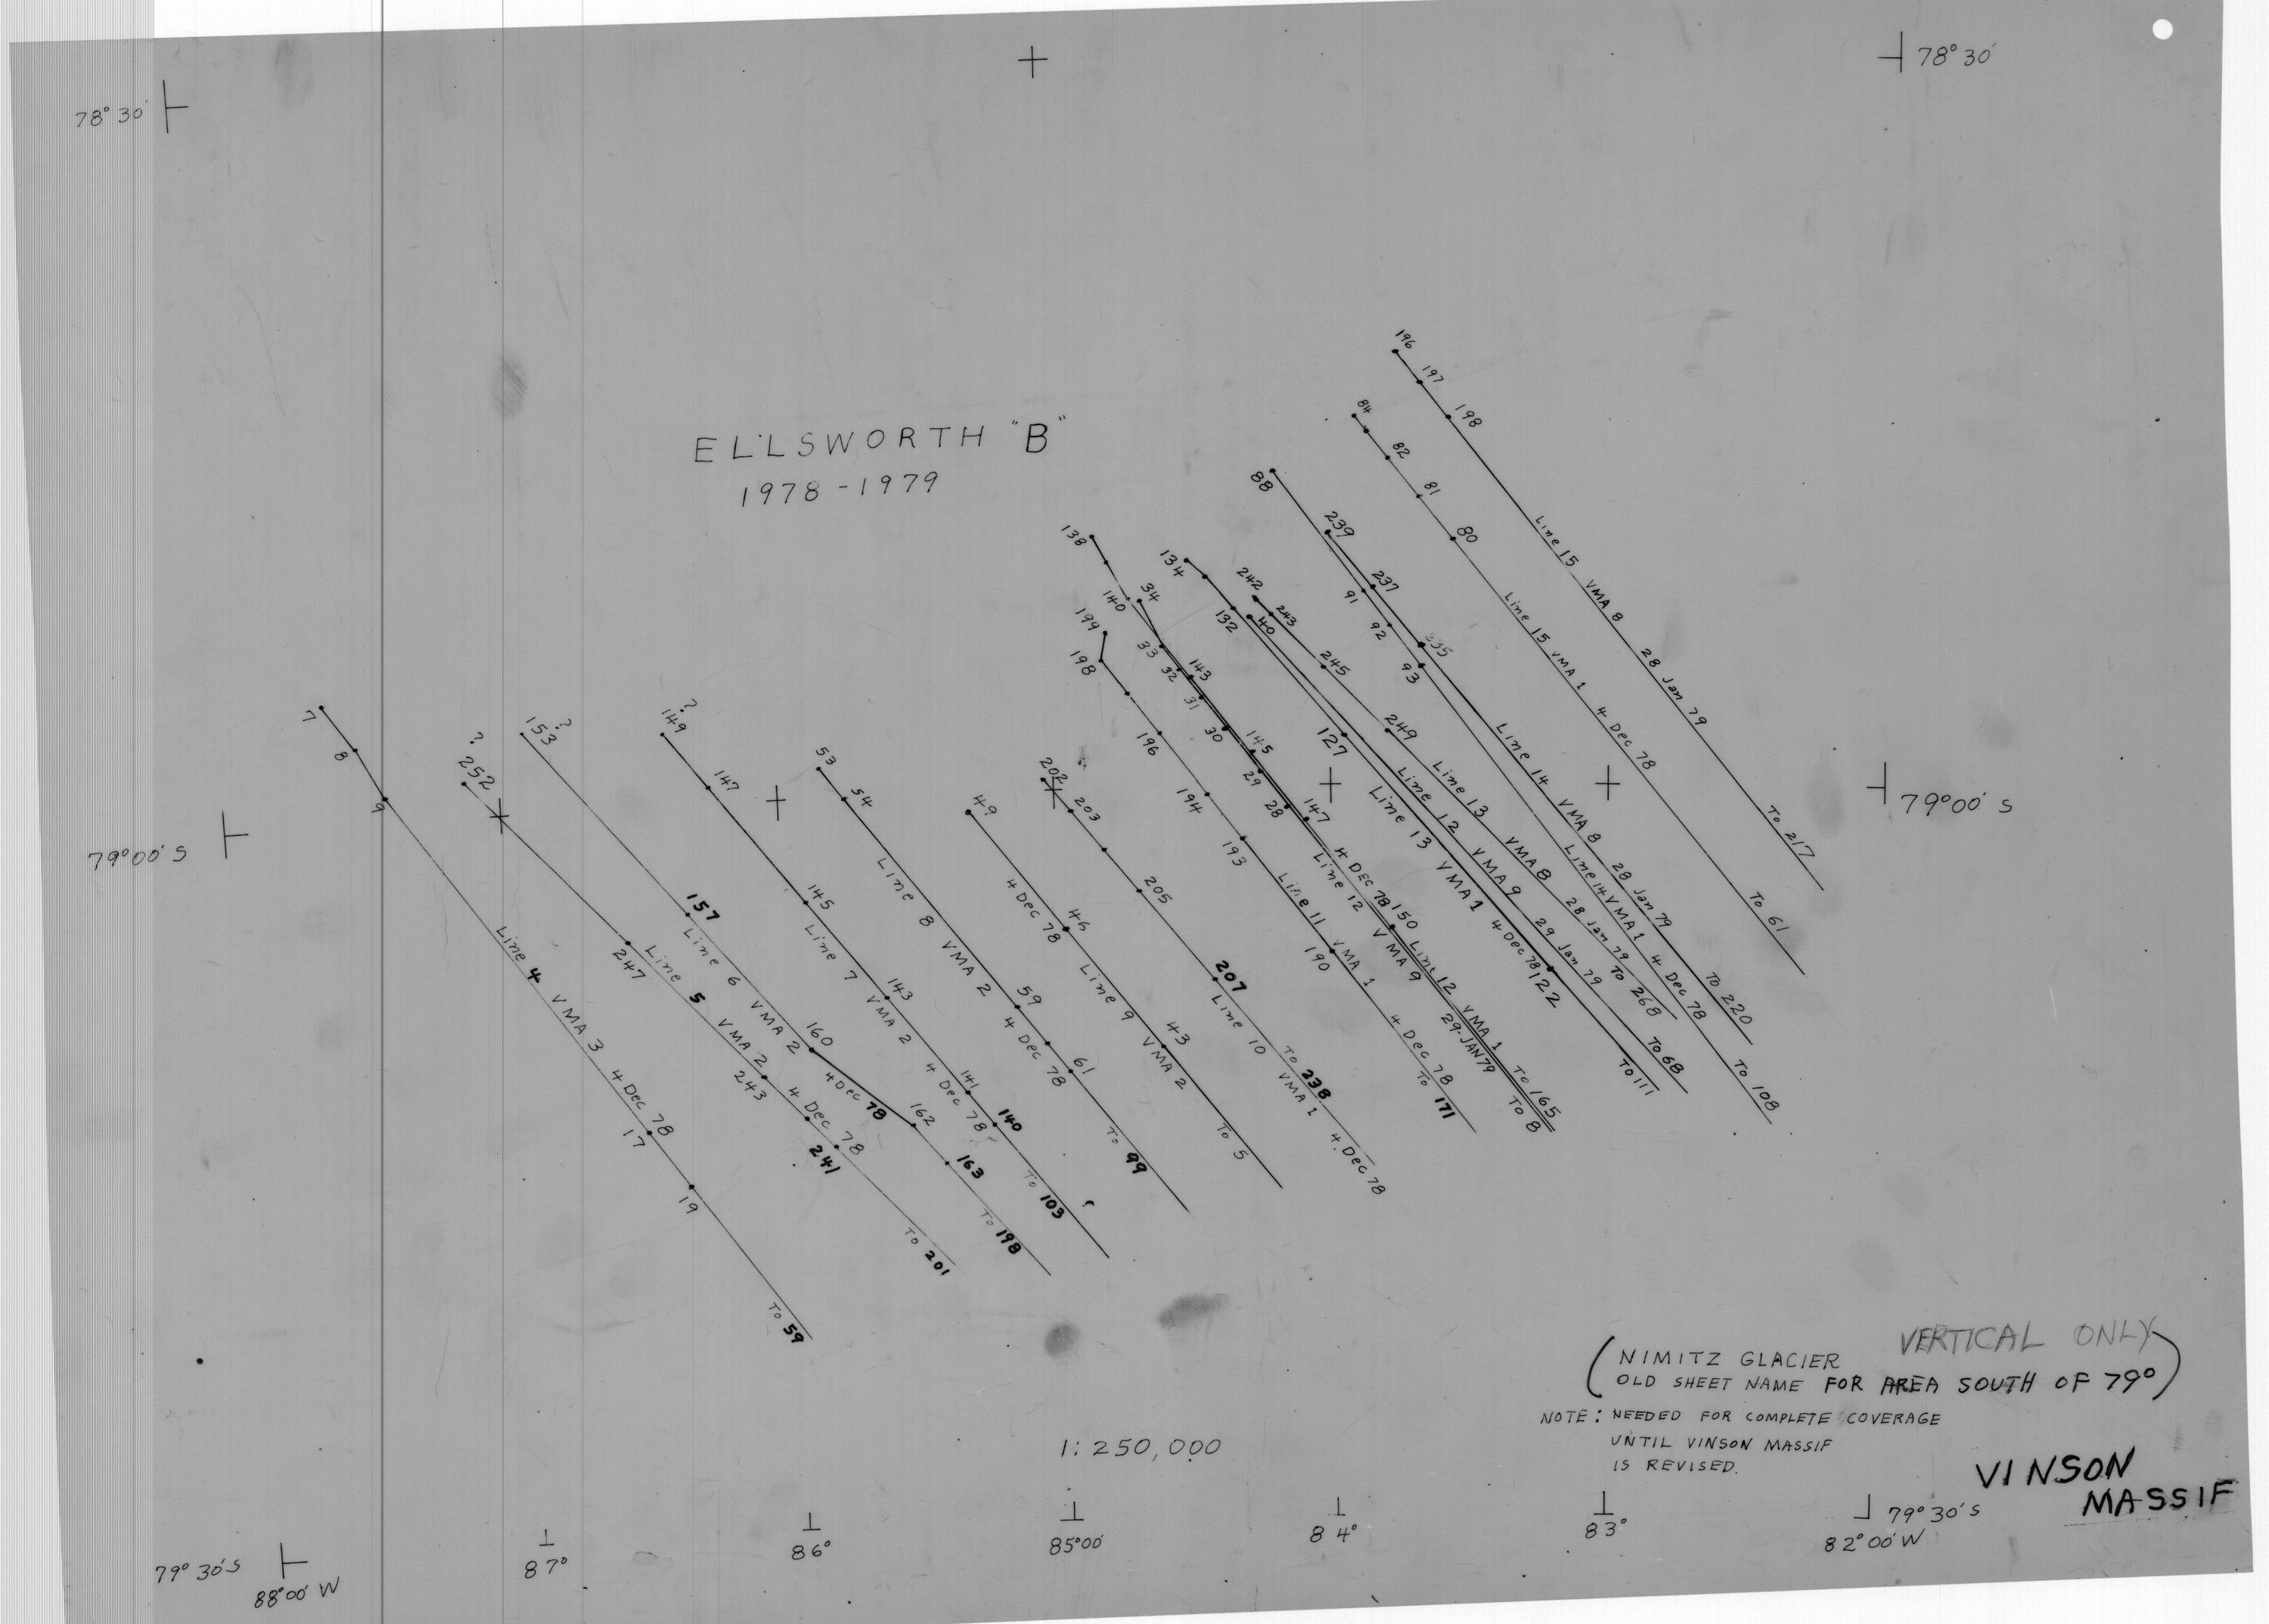 78° 30'
78° 30'
ELLSWORTH "B"
1978 - 1979
196
197
198
Line 15 VMA 8 28 Jan 79 To 217
84
82
81
80
Line 15 VMA 1 4 Dec 78 To 61
239
237
335
Line 14 VMA 8 28 Jan 79 To 220
88
91
92
93
Line 14 VMA 1 4 Dec 78 To 108
242
243
245
249
Line 13 VMA 8 28 Jan 79 To 268
40
Line 12 VMA 9 29 Jan 79 To 68
134
132
127
Line 13 VMA 1 4 Dec 78 122 To 111
138
140
143
145
147
4 DEC 78 150 Line 12 VMA 1 To 165
34
33
32
31
30
29
28
Line 12 VMA 9 29-JAN 79 To 8
199
198
196
194
193
Line 11 VMA 1 4 Dec 78 To 171
190
202
203
205
207
Line 10 VMA 1 4 Dec 78
To 238
49
46
4 Dec 78
Line 9 VMA 2
43
To 5
53
54
Line 8 VMA 2
59
4 Dec 78
61
To 99
?
149
147
145
Line 7 VMA 2
143
4 Dec 78
141
140
To 103
?
153
157
Line 6 VMA 2
160
4 Dec 78
162
163
To 198
?
252
247
Line 5 VMA 2
243
4 Dec 78
241
To 201
7
8
9
Line 4 VMA 3 4 Dec 78
17
19
To 59
79°00' S
79°00' S
VERTICAL ONLY
(NIMITZ GLACIER
OLD SHEET NAME FOR AREA SOUTH OF 79°)
NOTE: NEEDED FOR COMPLETE COVERAGE
UNTIL VINSON MASSIF
IS REVISED.
1: 250,000
VINSON
MASSIF
79° 30' S
88°00' W
87°
86°
85°00'
84°
83°
79° 30' S
82°00' W